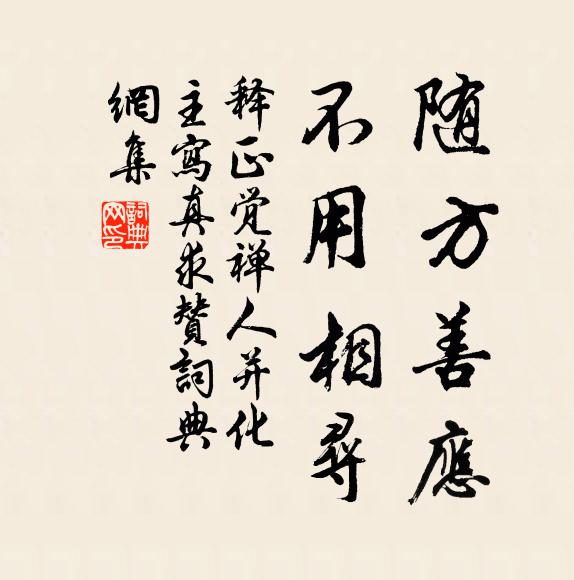 随方善應
不用相尋
释正觉禅人并化
主寫真求賛詞典
網集
詞典
网印